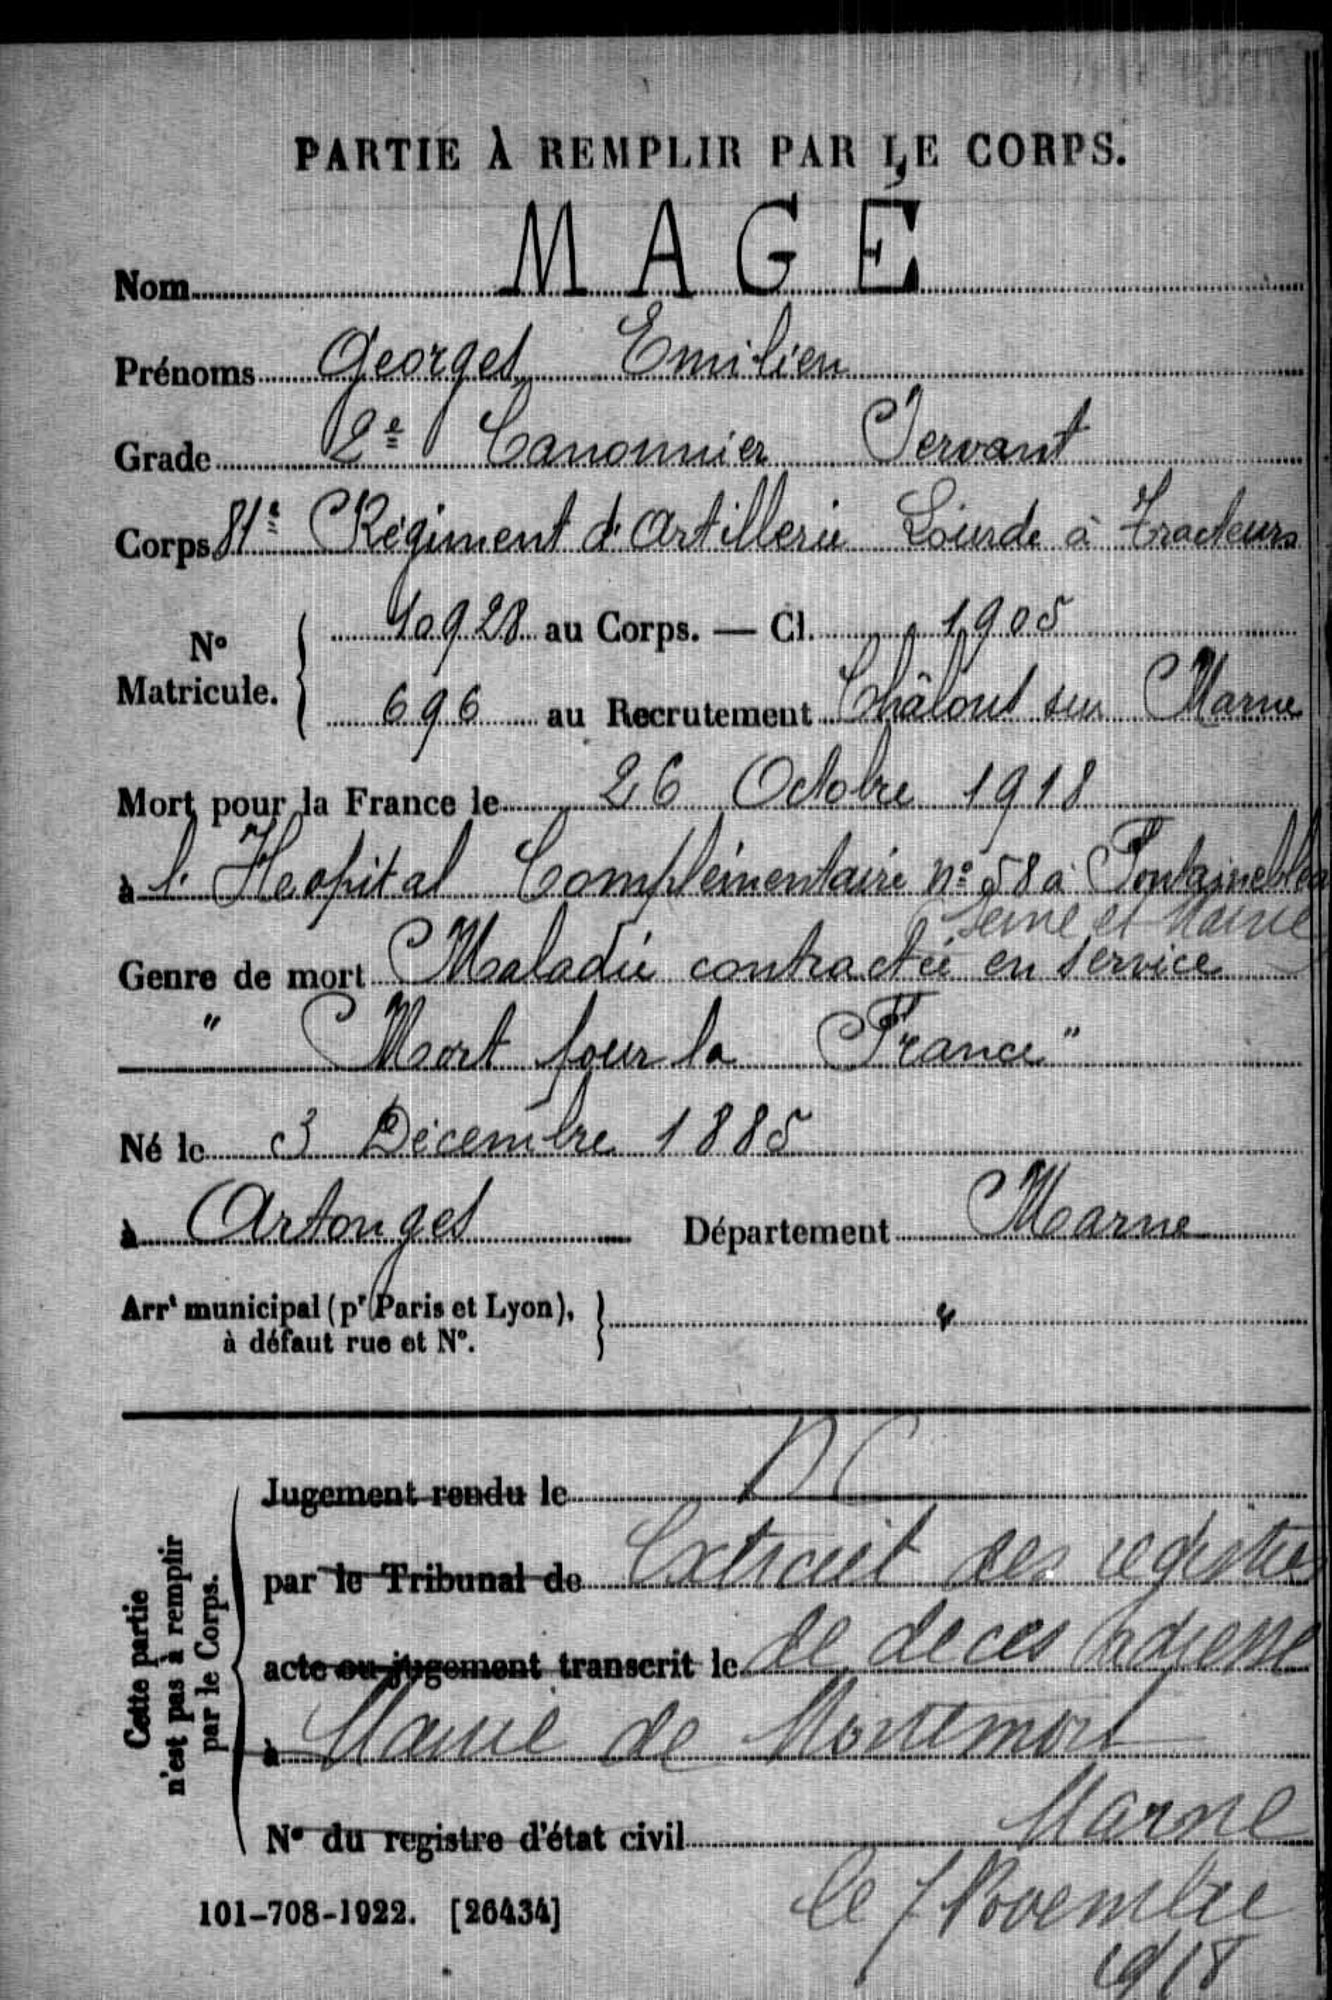 PARTIE À REMPLIR PAR LE CORPS.
Nom MAGÉ
Prénoms Georges Emilien
Grade 2e Canonnier Servant
Corps 81e Régiment d'Artillerie Lourde à Tracteurs
No Matricule. 10928 au Corps. — Cl. 1905
696 au Recrutement Châlons sur Marne
Mort pour la France le 26 Octobre 1918
à l'Heopital Complémentaire no 58 à Fontainebleau
Seine et Marne
Genre de mort Maladie contractée en service
" Mort pour la France "
Né le 3 Décembre 1885
à Artonges Département Marne
Arrt municipal (pr Paris et Lyon), "
à défaut rue et No.
Cette partie
n'est pas à remplir
par le Corps.
Jugement rendu le DC
par le Tribunal de Extrait des registres
acte ou jugement transcrit le de deces adressé
à Mairie de Montmort
Marne
No du registre d'état civil
le 7 Novembre
1918
101-708-1922. [26434]